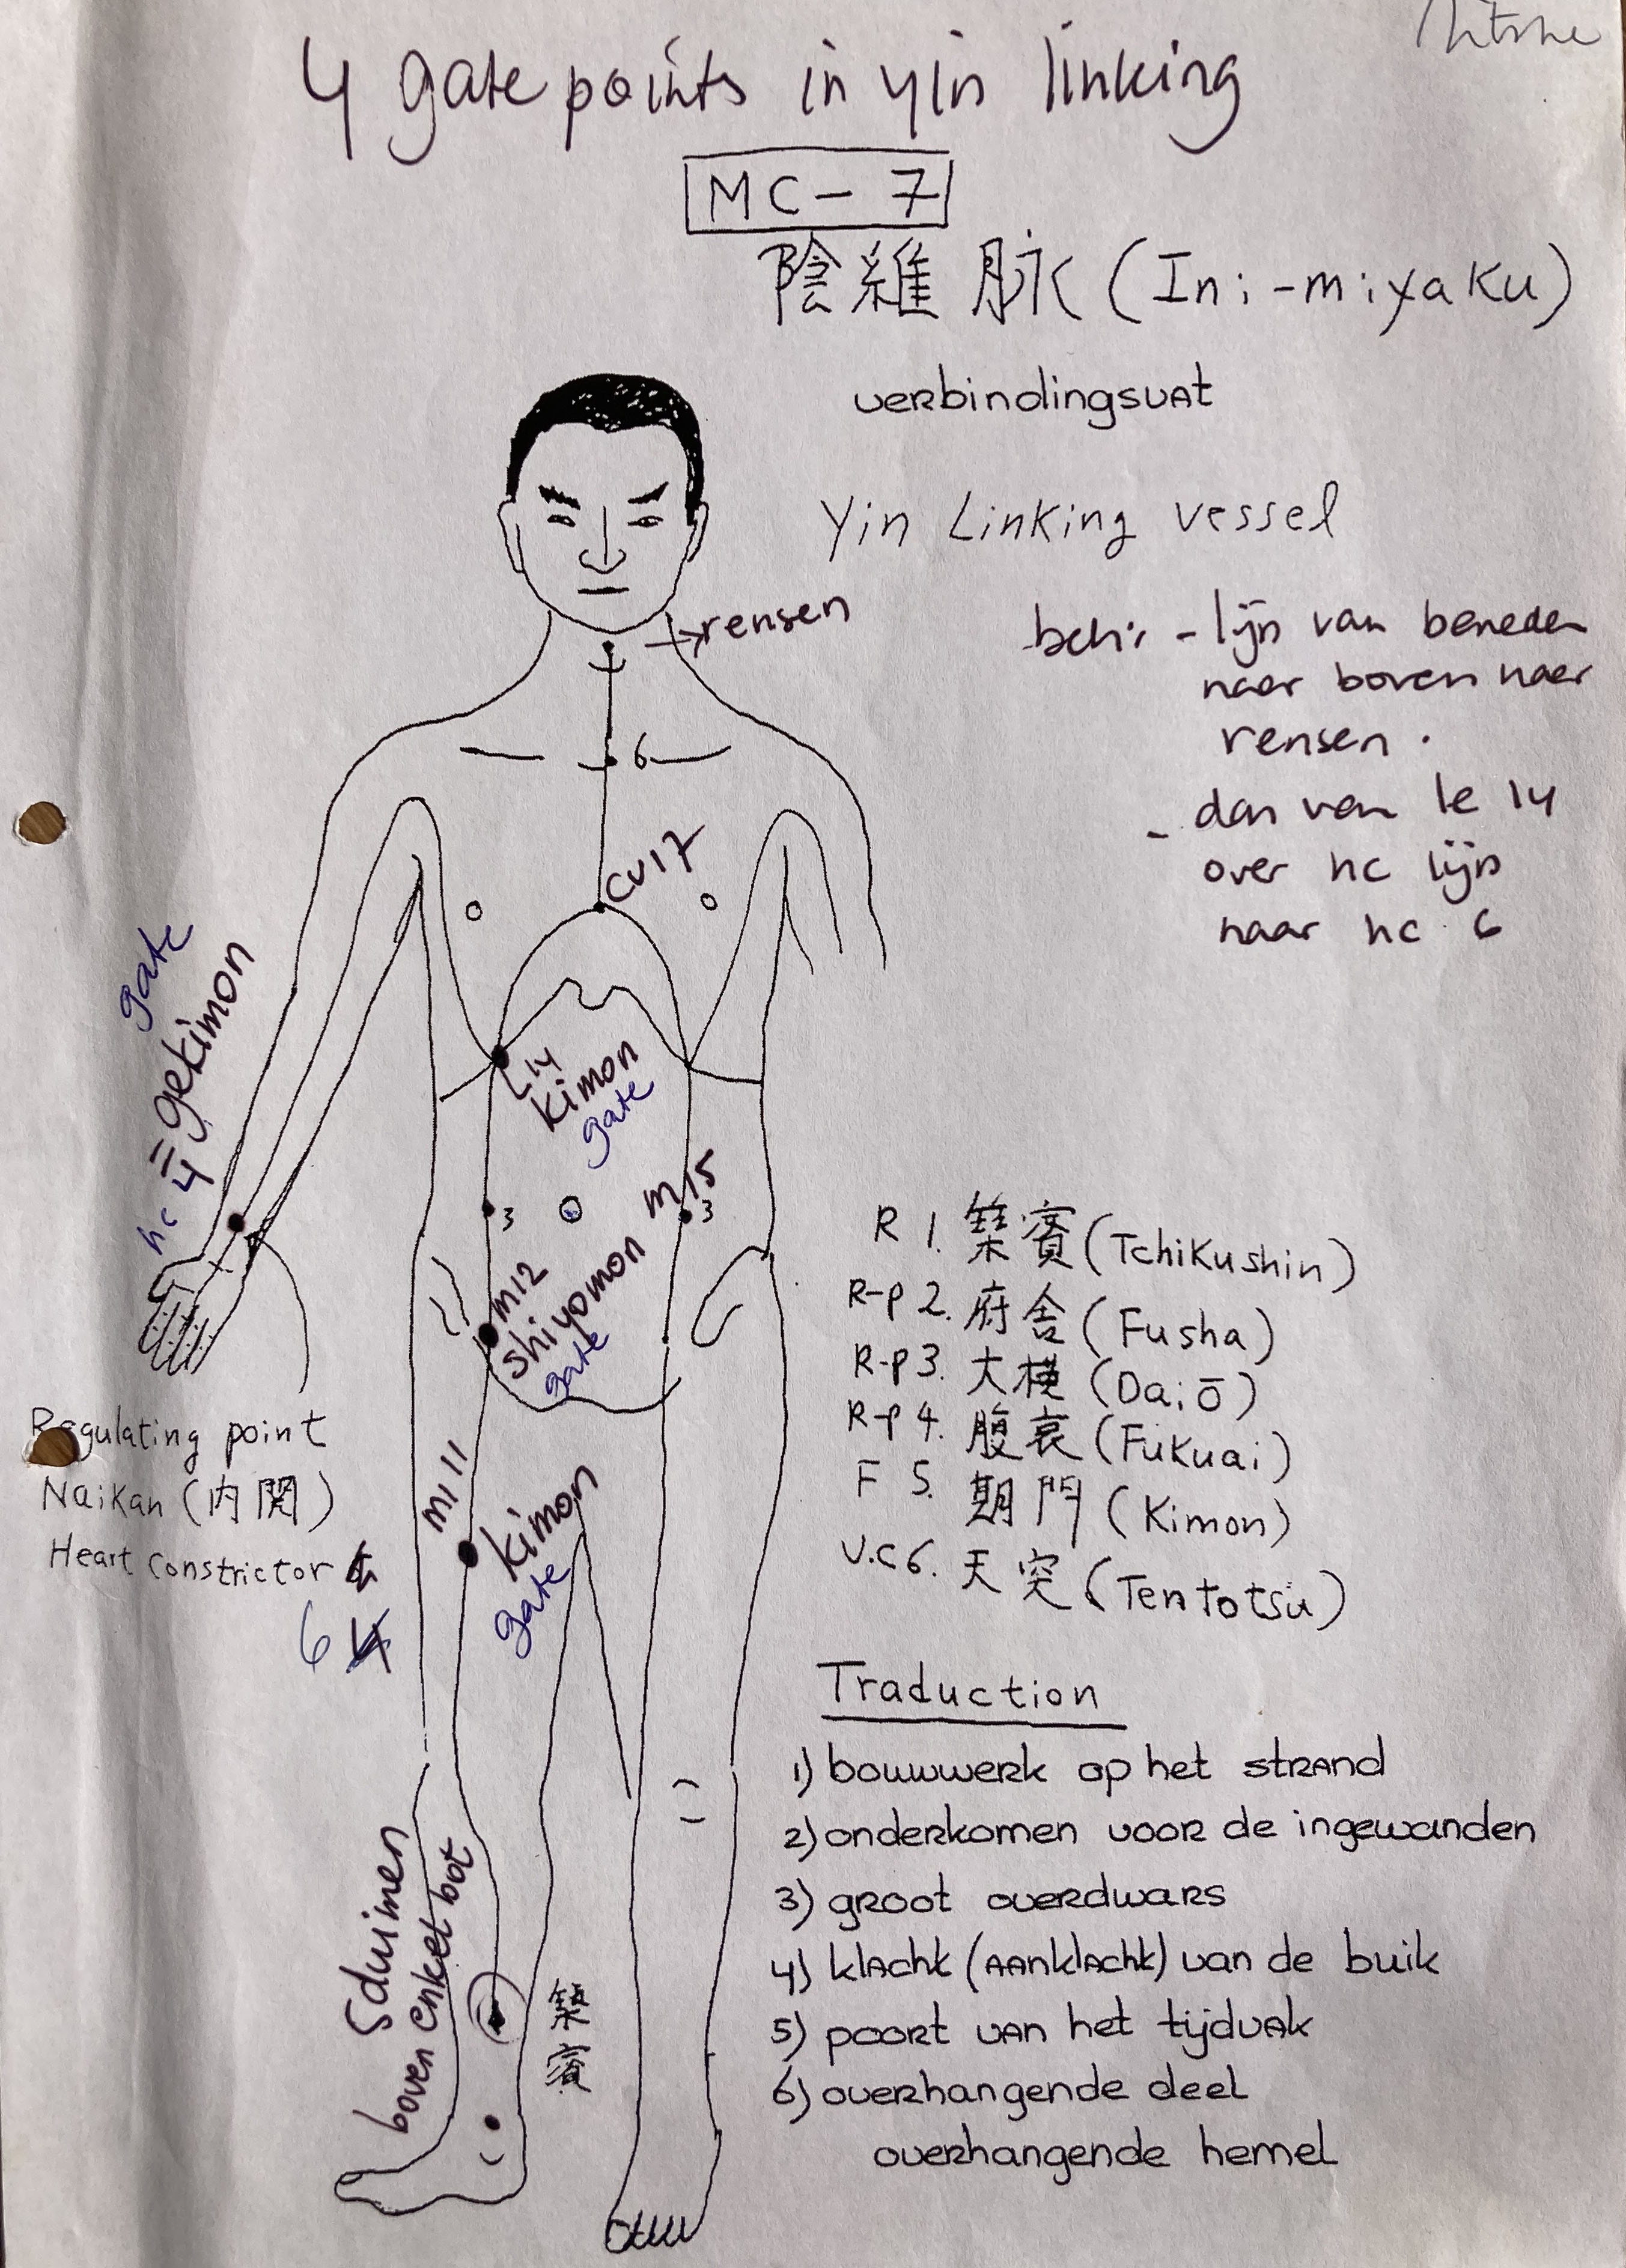 4 gate points in yin linking
MC- 7
陰維脉 (Ini-miyaku)
verbindingsvat
Yin Linking vessel
→rensen
beh: - lijn van beneden
naar boven naar
rensen.
- dan van le 14
over hc lijn
naar hc 6
6
CV17
gate
hc 4 = gekimon
L14
kimon
gate
3
m15
3
m12
shiyomon
gate
Regulating point
Naikan (内関)
Heart constrictor
6
m11
kimon
gate
R 1. 築賓 (Tchikushin)
R-p 2. 府舎 (Fusha)
R-p 3. 大横 (Daiō)
R-p 4. 腹哀 (Fukuai)
F 5. 期門 (Kimon)
V.C 6. 天突 (Tentotsu)
Traduction
1) bouwwerk op het strand
2) onderkomen voor de ingewanden
3) groot overdwars
4) klacht (aanklacht) van de buik
5) poort van het tijdvak
6) overhangende deel
overhangende hemel
5duimen
boven enkel bot
築
賓